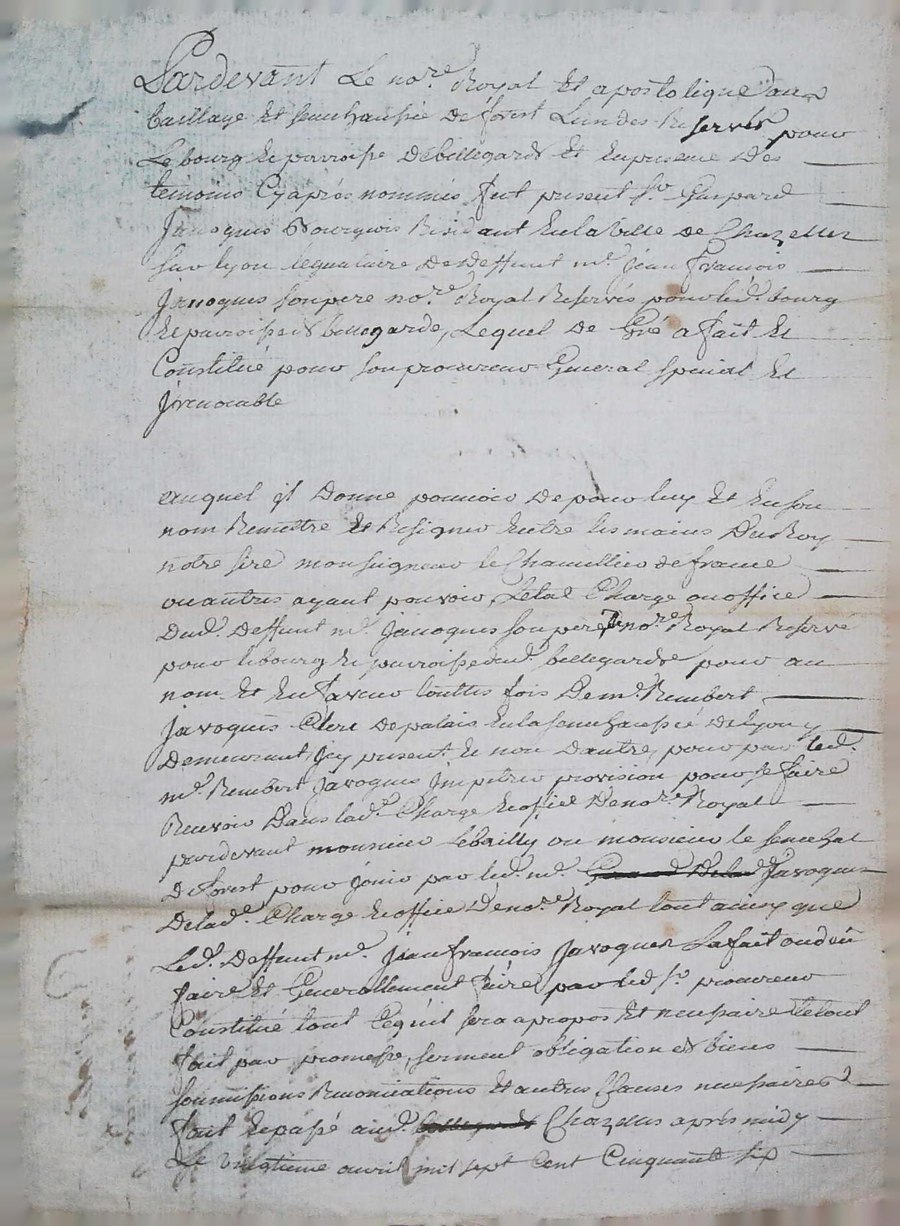 Pardevant Le no.re Royal Et apostolique au
baillage Et senechaussée de forest L'un des Reservés pour
Le bourg Et parroisse de bellegarde Et En presence des
temoins Cyaprés nommés fut present Sr. Gaspard
Javoques Bourgeois Residant En la Ville de Chazelles
sur Lyon légataire de deffunt me. jean francois
Javoques son pere no.re Royal Reservés pour led. bourg
Et parroisse de bellegarde, Lequel de Gré a fait Et
Constitué pour son procureur General special Et
Jrrevocable
auquel jl Donne pouvoir De pour luy Et En son
nom Remettre Et Resigner Entre les mains Du Roy
notre sire monseigneur le Chancellier de france
ou autres ayant pouvoir, L'etat Charge ou office
Dud. Deffunt me. Javoques son pere no.re Royal Reservé
pour le bourg Et parroisse dud. bellegarde pour au
nom Et En faveur touttes fois De me. Rembert
Javoques Clerc De palais En la senechaussée de Lyon y
Demeurant Jcy present Et non D'autre, pour par led.
me. Rembert Javoques Jmpetrer provision pour se faire
Recevoir Dans lad. Charge Et office De no.re Royal
pardevant monsieur Le bailly ou monsieur le senechal
De forest pour jouir par led. me. Javoques
De lad. Charge Et office De no.re Royal tout ainsy que
Led. Deffunt me. Jean francois Javoques La fait ou dû
faire Et Generallement faire par led sr. procureur
Constitué tout ce qu'il sera apropos Et necessaire Le tout
fait par promesse, serment obligation de biens
soumissions Renonciations Et autres Clauses necessaires
fait Et passé aud. Chazelles aprés midy
Le vingtieme avril mil sept Cent Cinquante six